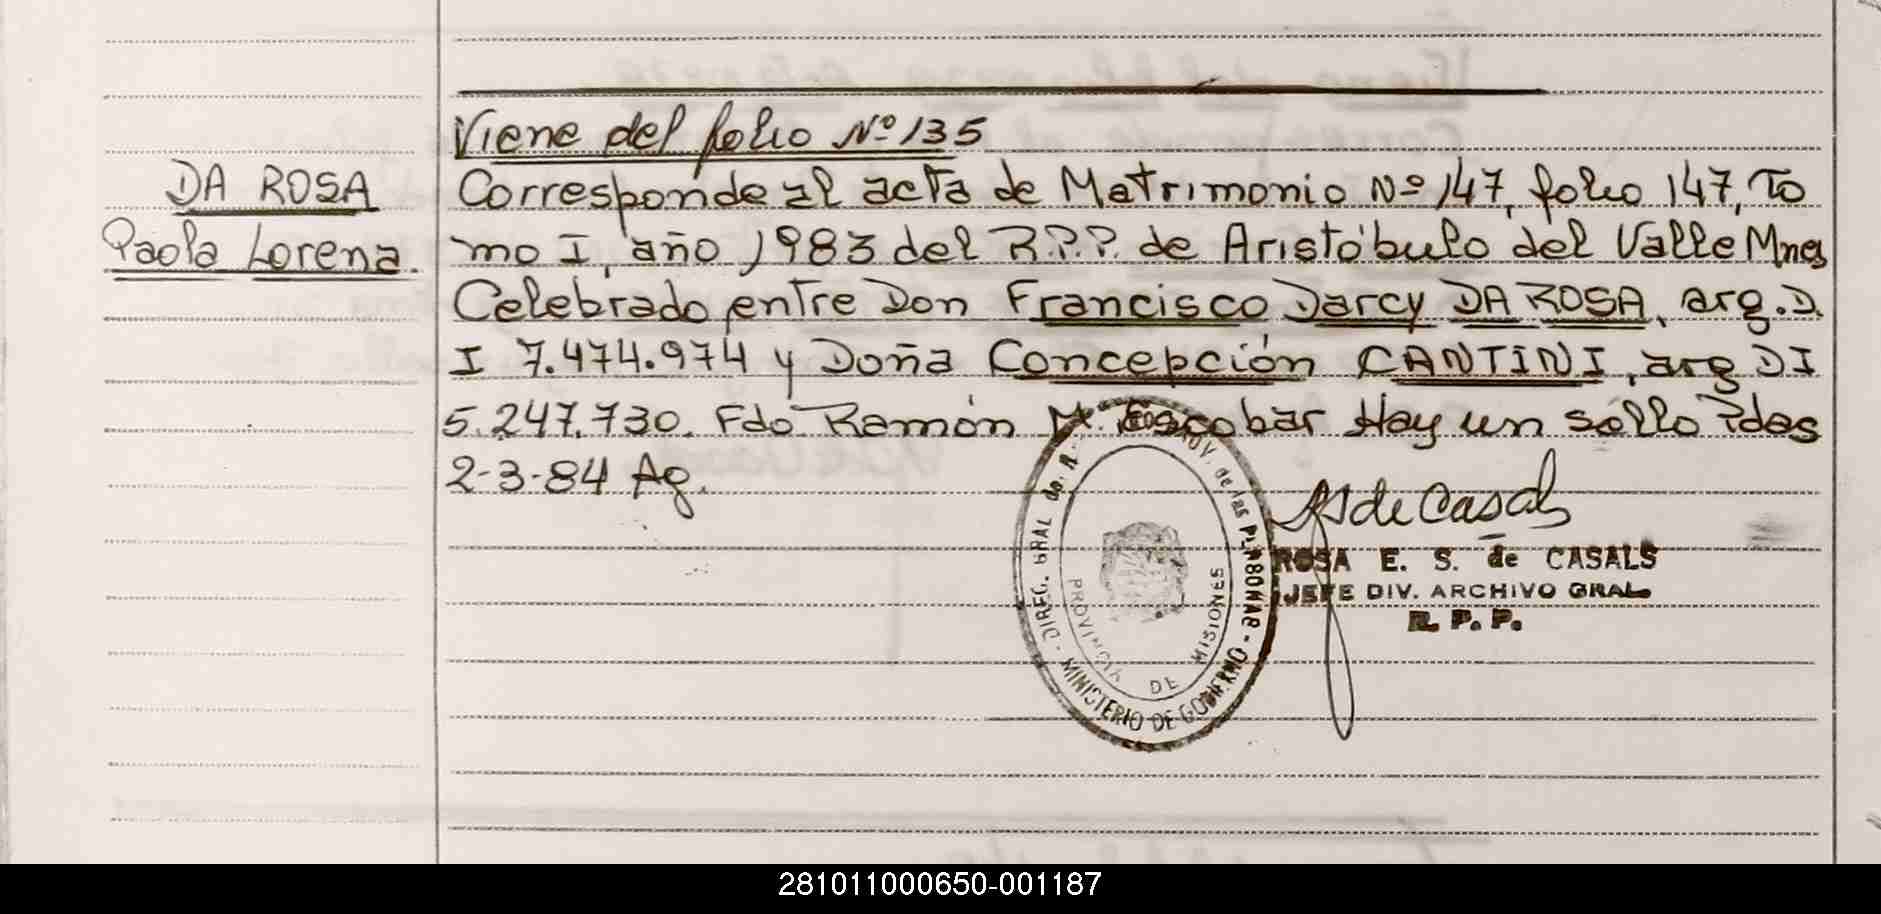 Viene del folio Nº 135
DA ROSA
Paola Lorena.
Corresponde al acta de Matrimonio Nº 147, folio 147, To
mo I, año 1983 del R.P.P. de Aristóbulo del Valle Mnes
Celebrado entre Don Francisco Darcy DA ROSA, arg. D.
I 7.474.974 y Doña Concepción CANTINI, arg DI
5.247.730. Fdo Ramón M. Escobar Hay un sello Pdas
2-3-84 Ag.
DIREC. GRAL de. R. PROV. de las PERSONAS - MINISTERIO DE GOBIERNO -
PROVINCIA DE MISIONES
RS de Casals
ROSA E. S. de CASALS
JEFE DIV. ARCHIVO GRAL
R. P. P.
281011000650-001187